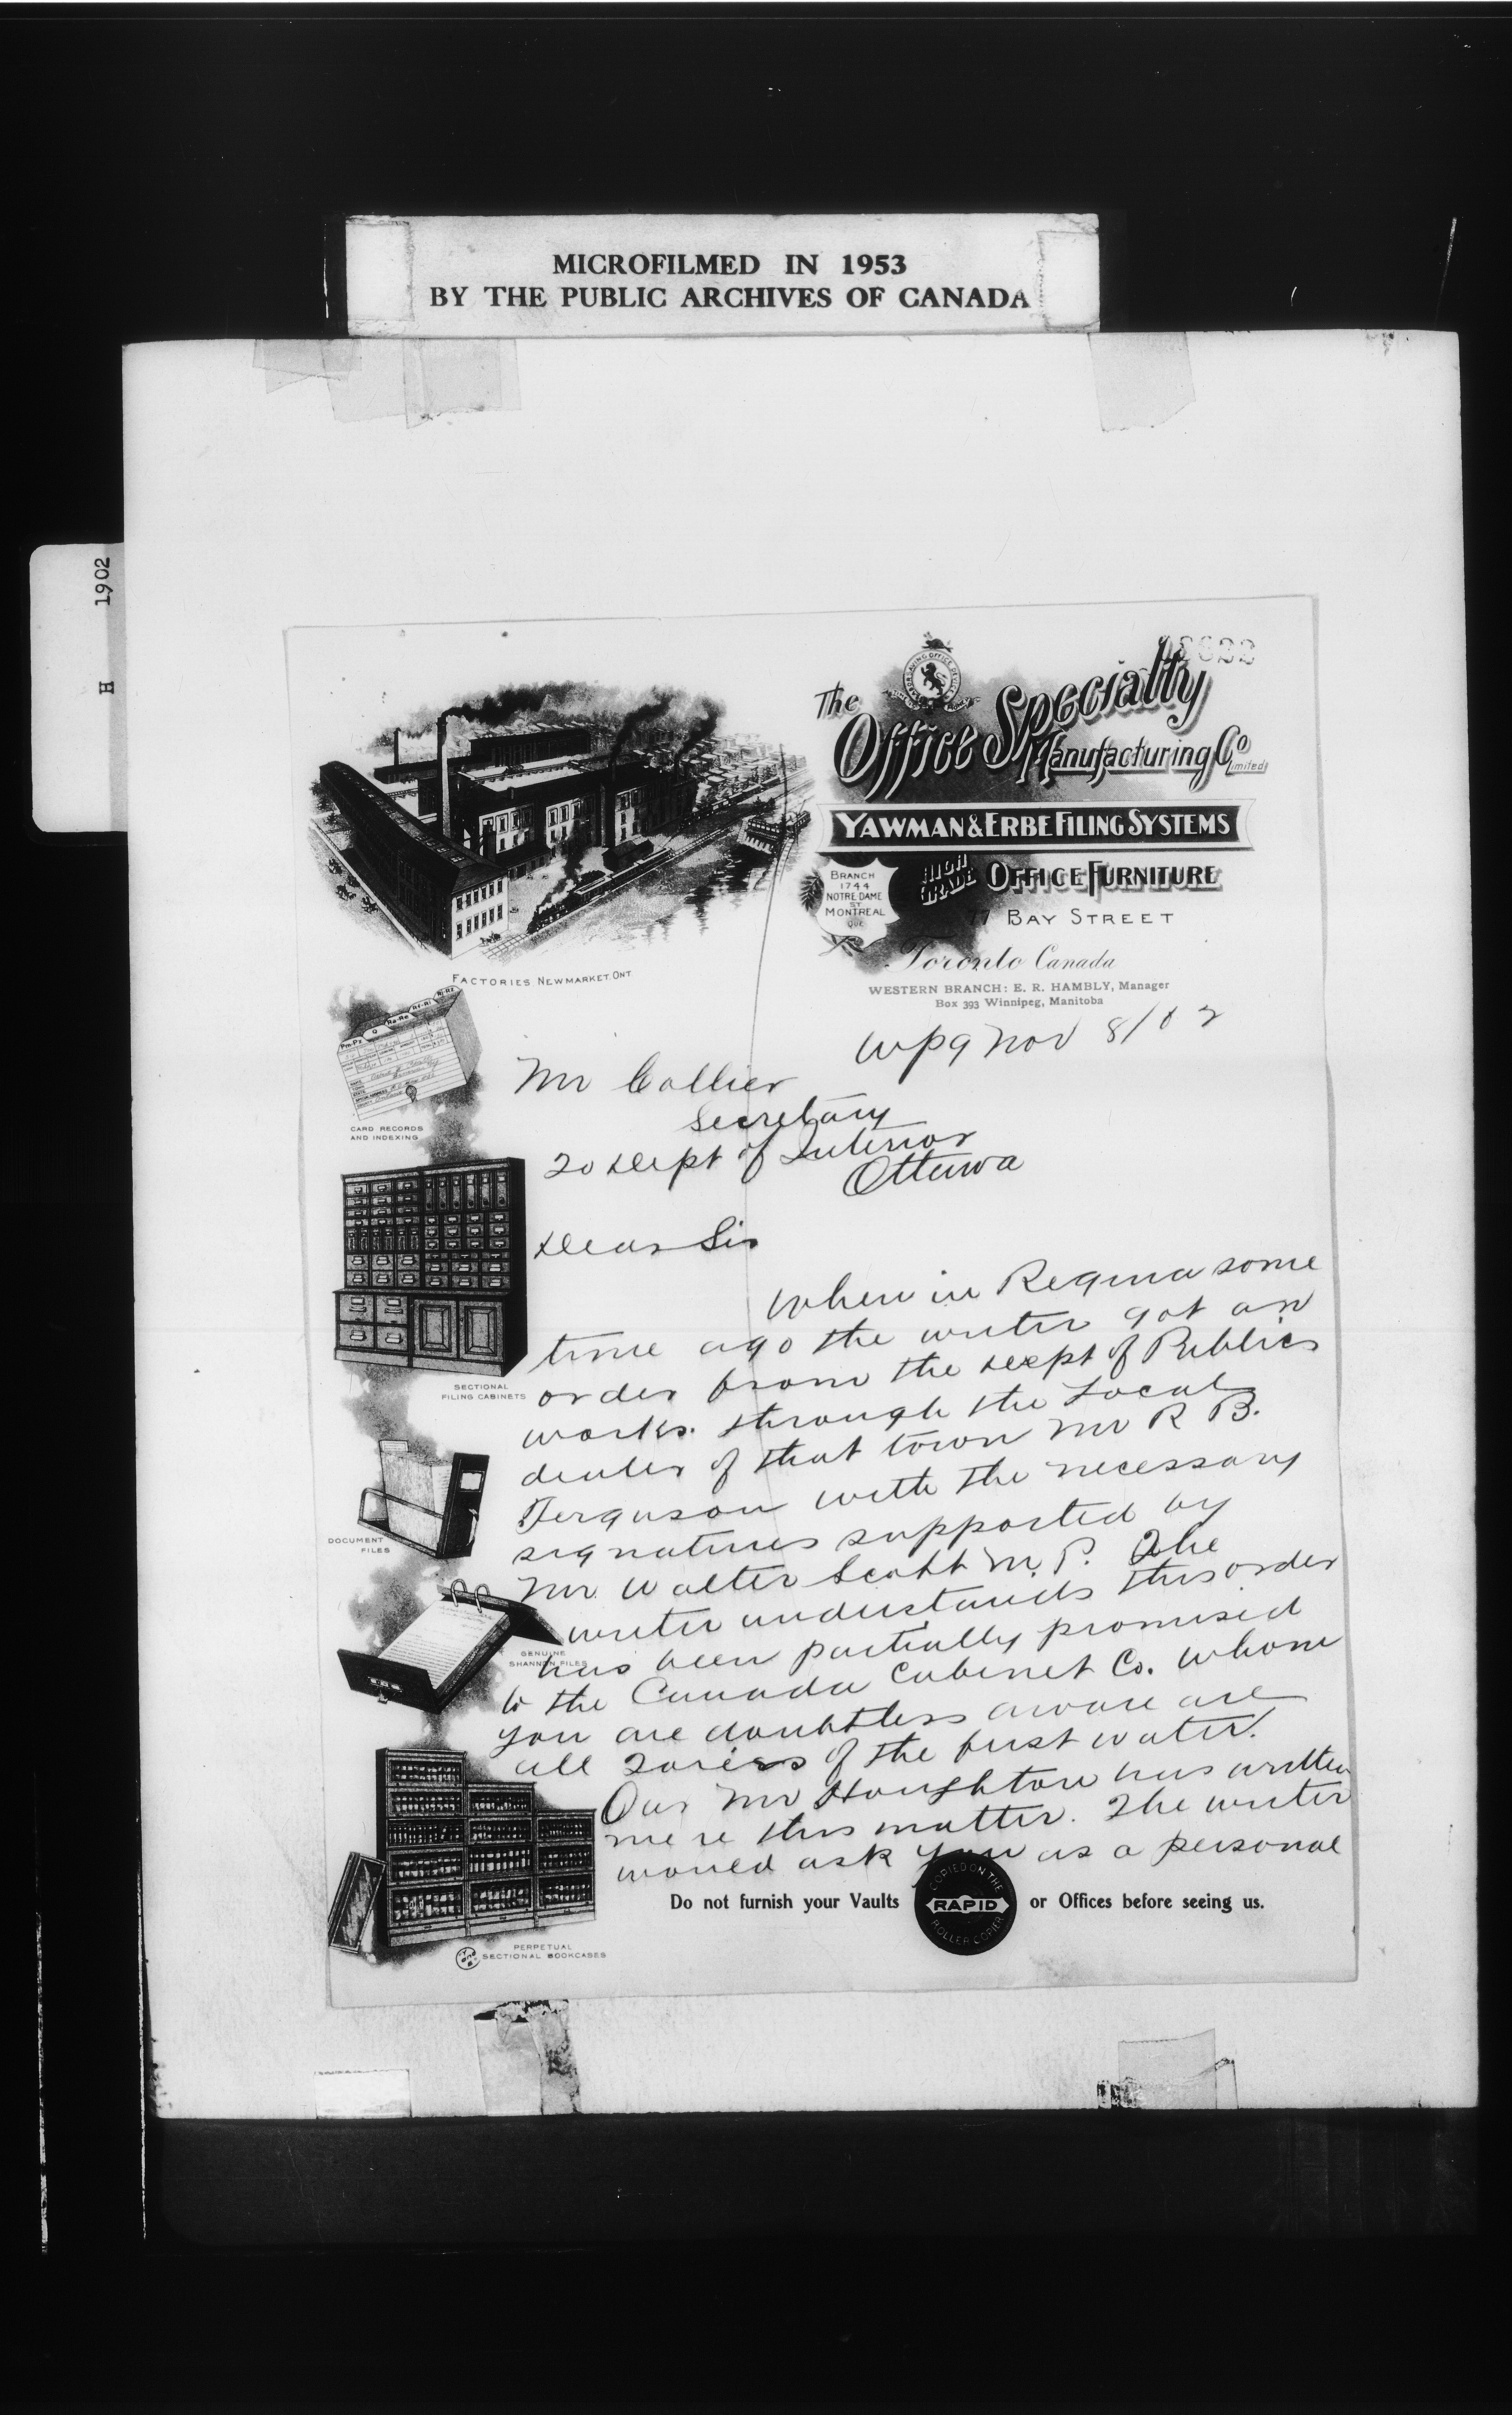 MICROFILMED IN 1953
BY THE PUBLIC ARCHIVES OF CANADA
H 1902
The
Office Specialty
Manufacturing Co
Limited
YAWMAN & ERBE FILING SYSTEMS
HIGH GRADE OFFICE FURNITURE
BRANCH
1744
NOTRE DAME
ST
MONTREAL
QUE
77 BAY STREET
Toronto Canada
WESTERN BRANCH: E. R. HAMBLY, Manager
Box 393 Winnipeg, Manitoba
FACTORIES NEWMARKET. ONT
Wpg Nov 8/02
Mr Collier
Secretary
To Dept of Interior
Ottawa
Dear Sir
When in Regina some
time ago the writer got an
order from the Dept of Public
works through the Local
dealer of that town Mr R B.
Ferguson with the necessary
signatures supported by
Mr Walter Scott M.P. The
writer understands this order
has been partially promised
to the Canada Cabinet Co. whom
you are doubtless aware are
all Tories of the first water.
Our Mr Houghton has written
me re this matter. The writer
would ask you as a personal
CARD RECORDS
AND INDEXING
SECTIONAL
FILING CABINETS
DOCUMENT
FILES
GENUINE
SHANNON FILES
PERPETUAL
SECTIONAL BOOKCASES
Do not furnish your Vaults or Offices before seeing us.
COPIED ON THE
RAPID
ROLLER COPIER